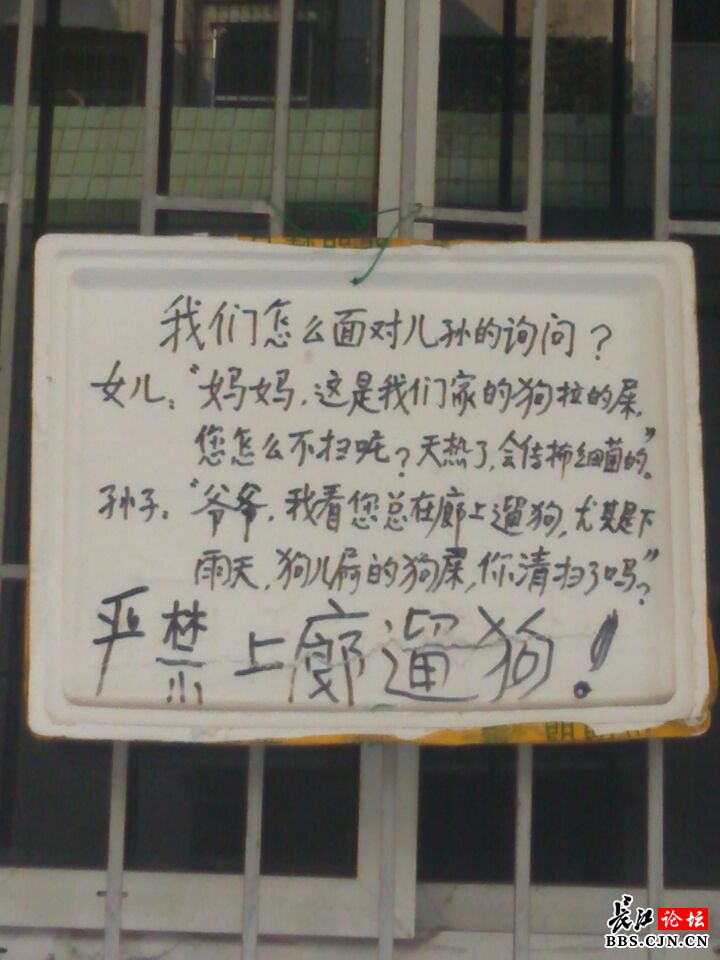 我们怎么面对儿孙的询问？
女儿："妈妈，这是我们家的狗拉的屎，
您怎么不扫呢？天热了，会传播细菌的"。
孙子："爷爷，我看您总在廊上遛狗，尤其是下
雨天，狗儿屙的狗屎，你清扫了吗"？
严禁上廊遛狗！
长江论坛
BBS.CJN.CN